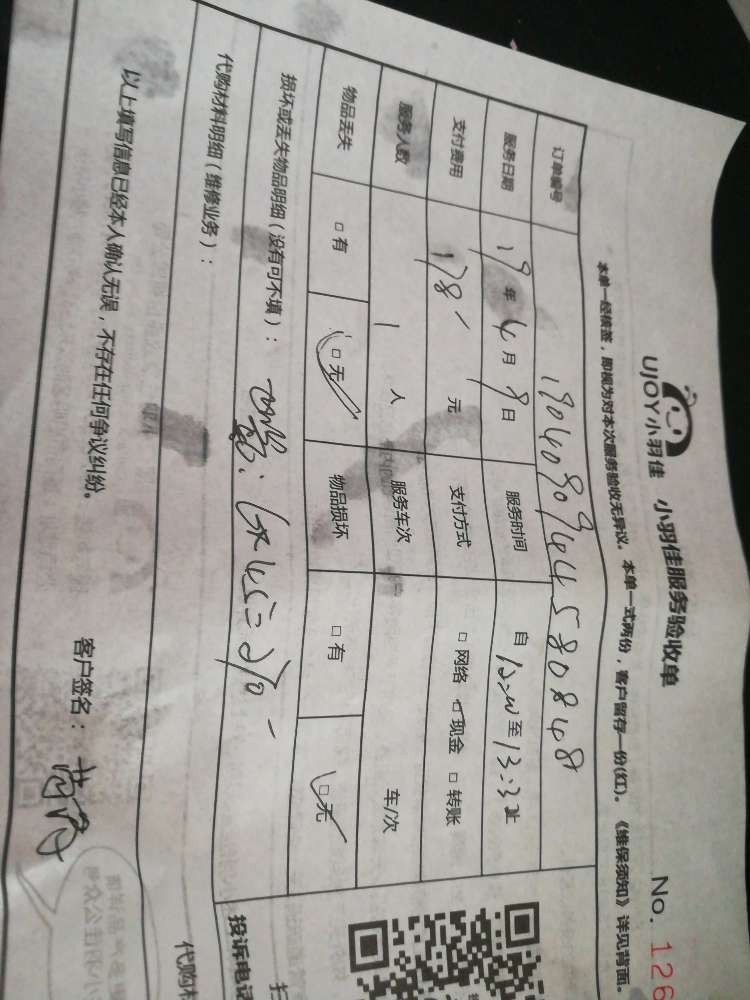 UJOY小羽佳 小羽佳服务验收单
No. 126
本单一经核签，即视为对本次服务验收无异议。 本单一式两份，客户留存一份(红)。《维保须知》详见背面。
订单编号
服务日期 19年4月9日 服务时间 自 至 止
支付费用 178 元 支付方式 □网络 □现金 □转账
服务人数 1 人 服务车次 车/次
物品丢失 □有 □无 物品损坏 □有 □无
损坏或丢失物品明细（没有可不填）：
代购材料明细（维修业务）：
以上填写信息已经本人确认无误，不存在任何争议纠纷。
客户签名：
投诉电话